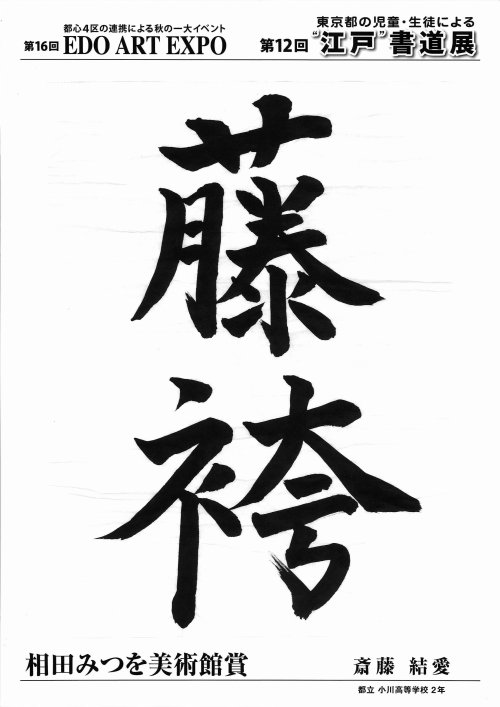 都心4区の連携による秋の一大イベント
第16回 EDO ART EXPO
東京都の児童・生徒による
第12回 “江戸”書道展
藤
袴
相田みつを美術館賞
斎藤 結愛
都立 小川高等学校 2年